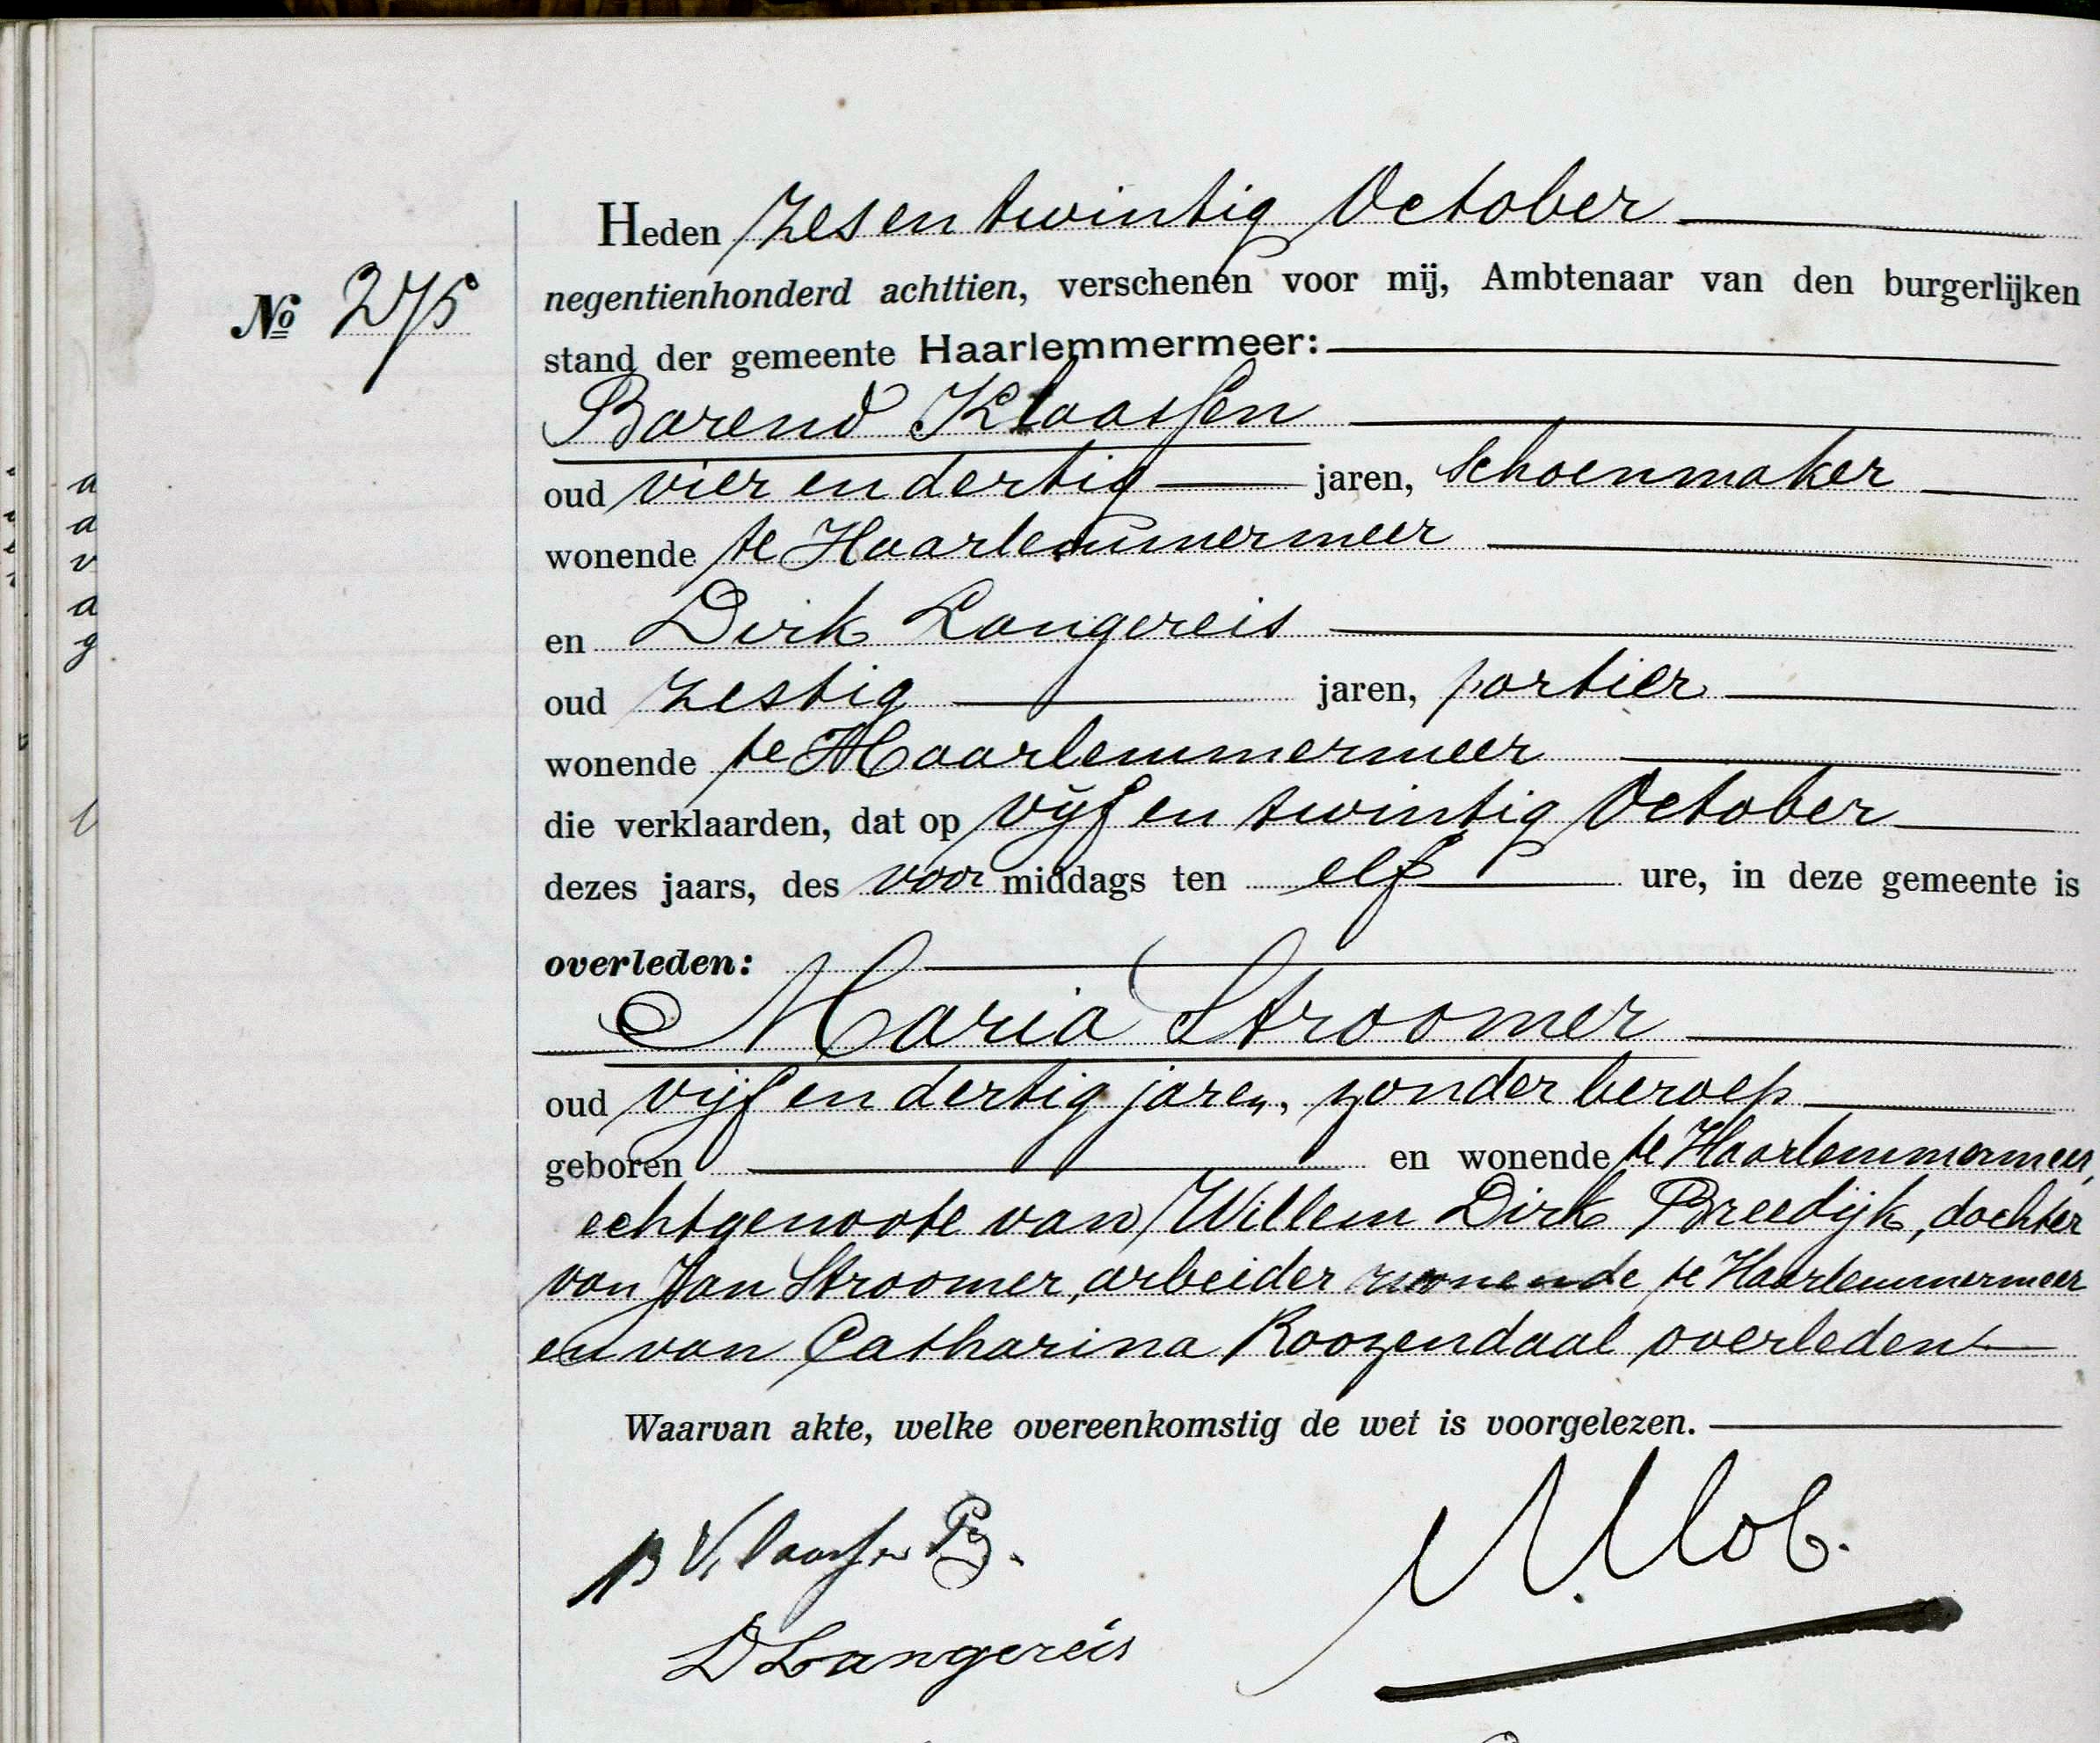 Heden zes en twintig October
negentienhonderd achttien, verschenen voor mij, Ambtenaar van den burgerlijken
№ 275
stand der gemeente Haarlemmermeer:
Barend Klaassen
oud vier en dertig jaren, schoenmaker
wonende te Haarlemmermeer
en Dirk Langereis
oud zestig jaren, portier
wonende te Haarlemmermeer
die verklaarden, dat op vijf en twintig October
dezes jaars, des voor middags ten elf ure, in deze gemeente is
overleden:
Maria Stroomer
oud vijf en dertig jaren, zonder beroep
geboren en wonende te Haarlemmermeer,
echtgenoote van Willem Dirk Breedijk, dochter
van Jan Stroomer, arbeider wonende te Haarlemmermeer
en van Catharina Roozendaal overleden
Waarvan akte, welke overeenkomstig de wet is voorgelezen.
B Klaassen
D Langereis